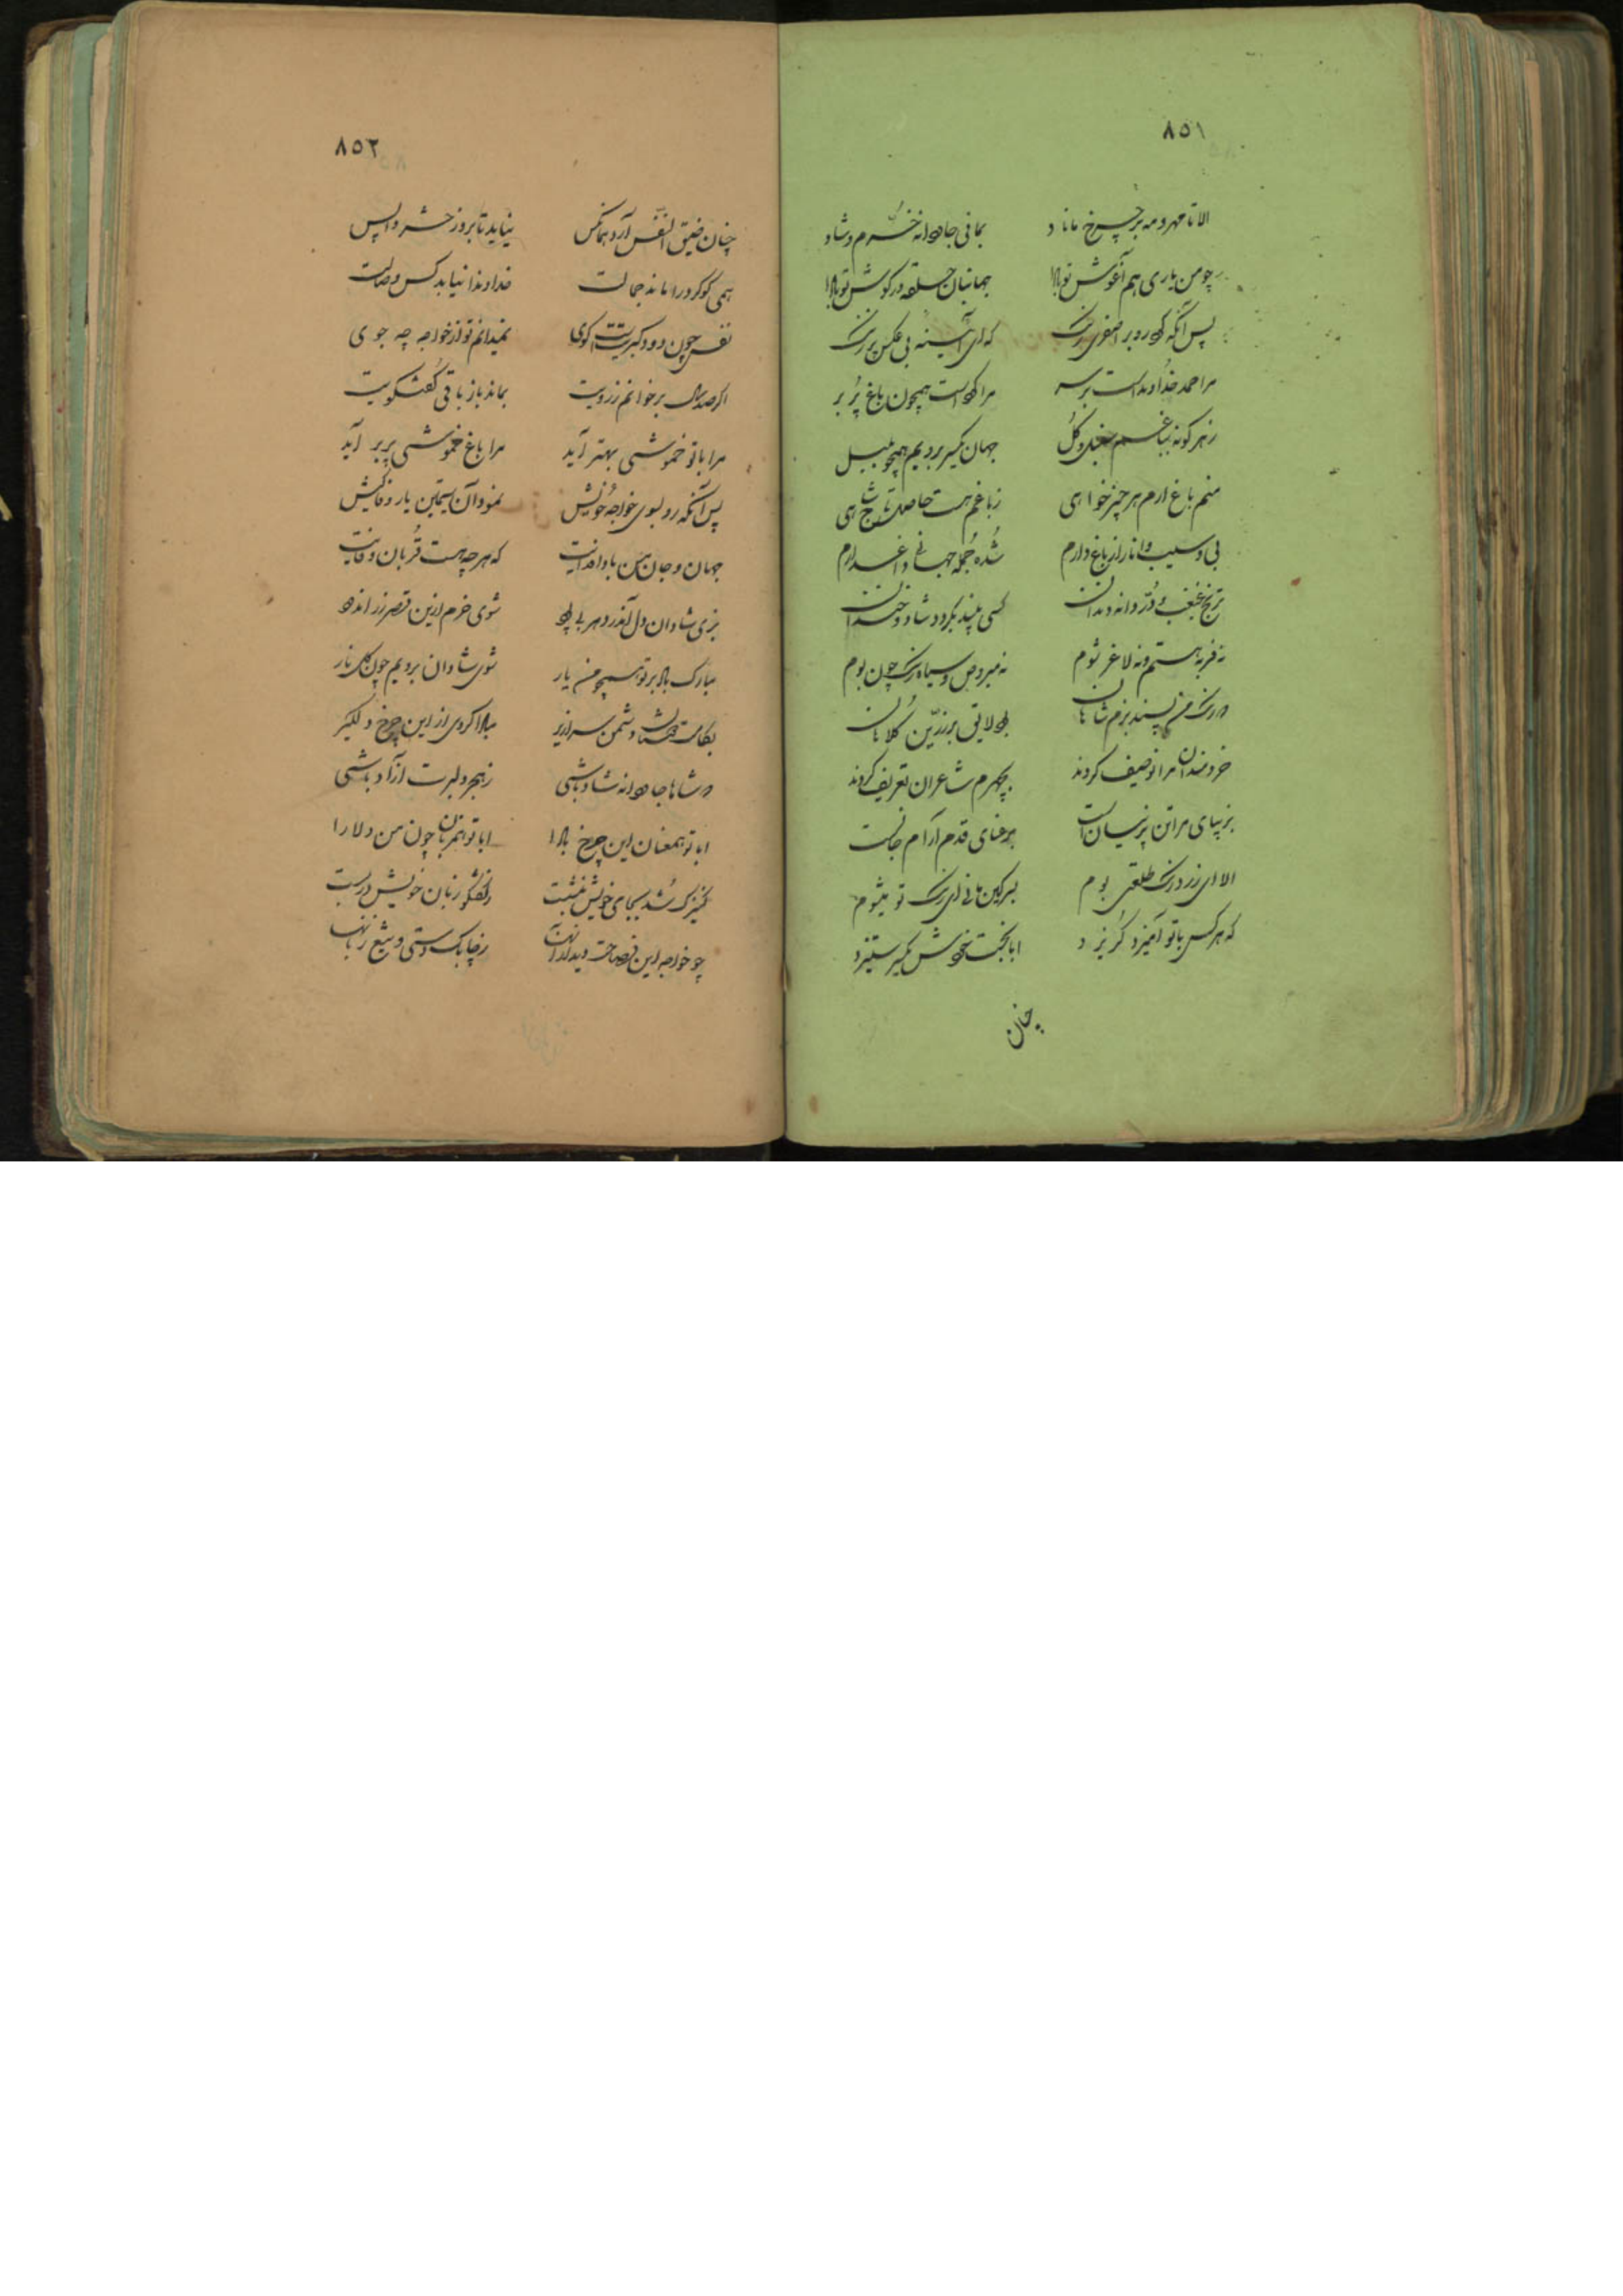 ٨٥١
الا تا مهر و مه بر چرخ ماناد بمانی جاودانه خرّم و شاد
چو من یاری هم آغوش تو بادا جهانبان حلقه در گوش تو بادا
پس آنگه کرد رو بر اصفری رنگ که ای آیینه بی عکس پر زنگ
مرا حمد خداوند است بر سر مرا است همچون باغ پُر بر
ز هر گونه بباغم سنبل و گُل جهان یکسر برویم همچو بلبل
منم باغ ارم هر چیز خواهی ز باغم هست حاصل تا شاهی
بی و سیب و انار از باغ دارم شُده جُمله جهانی داغدارم
ترنج غبغب و دُرّ دانه دندان کسی بیند بگردد شاد و خندان
نه فربه هستم و نه لاغر شوم نه مبروص و سیاه رنگ چون بوم
رنگ من پسند بزم شاهان بود لایق بزرّین کُلاهان
خردمندان مرا توصیف کردند بچهرم شاعران تعریف کردند
بزیبای مرا تن پرنیان است برعنای قدم آرام جانست
الا ای زرد رنگ طلعتی بوم بسرگین مانی ای رنگ تو میشوم
که هر کس با تو آمیزد گُریزد ابا بخت خوش یکسر ستیزد
چنان
٨٥٢
چنان ضیق النّفس آرد همانکس نیاید تا بروز حشر واپس
همی گوگرد را ماند جمالت خداوندا نیابد کس وصالت
نفس چون دود کبریتت گوی نمیدانم تو از خواجه چه جوی
اگر صد سال برخوانم ز رویت بماند باز باقی گُفتگویت
مرا با تو خموشی بهتر آید مرا باغ خموشی پر بر آید
پس آنگه رو بسوی خواجهٔ خویش نمود آن سیمتن یار وفاکیش
جهان و جان من بادا فدایت که هر چه هست قُربان وفایت
بزی شادان دل اندر دهر شوی خرم ازین قصر زر اندود
مبارک باد بر تو همچو من یار شوی شادان برویم چون گل نار
بکامت دوستان و دشمن سرازیر مبادا گردی از این چرخ دلگیر
شاها جاودانه شاد باشی ز هجر دلبرت آزاد باشی
ابا تو همعنان این چرخ بادا ابا تو همزبان چون من دلارا
کنیزک شُد بجای خویش بنشست ز گُفتگو زبان خویش در بست
چو خواجه این فصاحت دید از آنها ز چابک دستی و تیغ زبانها